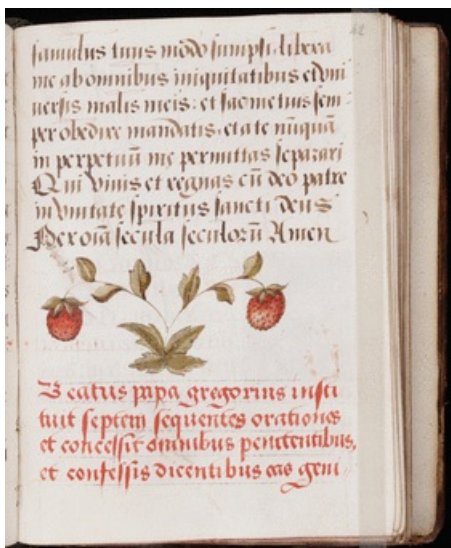 famulus tuus modo sumpsi libera
me ab omnibus iniquitatibus et vni
uersis malis meis: et fac me tuis sem-
per obedire mandatis, et a te nūquā
in perpetuū me permittas separari
Qui viuis et regnas cū deo patre
in vnitate spiritus sancti deus
Per oīa secula seculorū Amen
Beatus papa gregorius insti
tuit septem sequentes orationes
et concessit omnibus penitentibus,
et confessis dicentibus eas geni